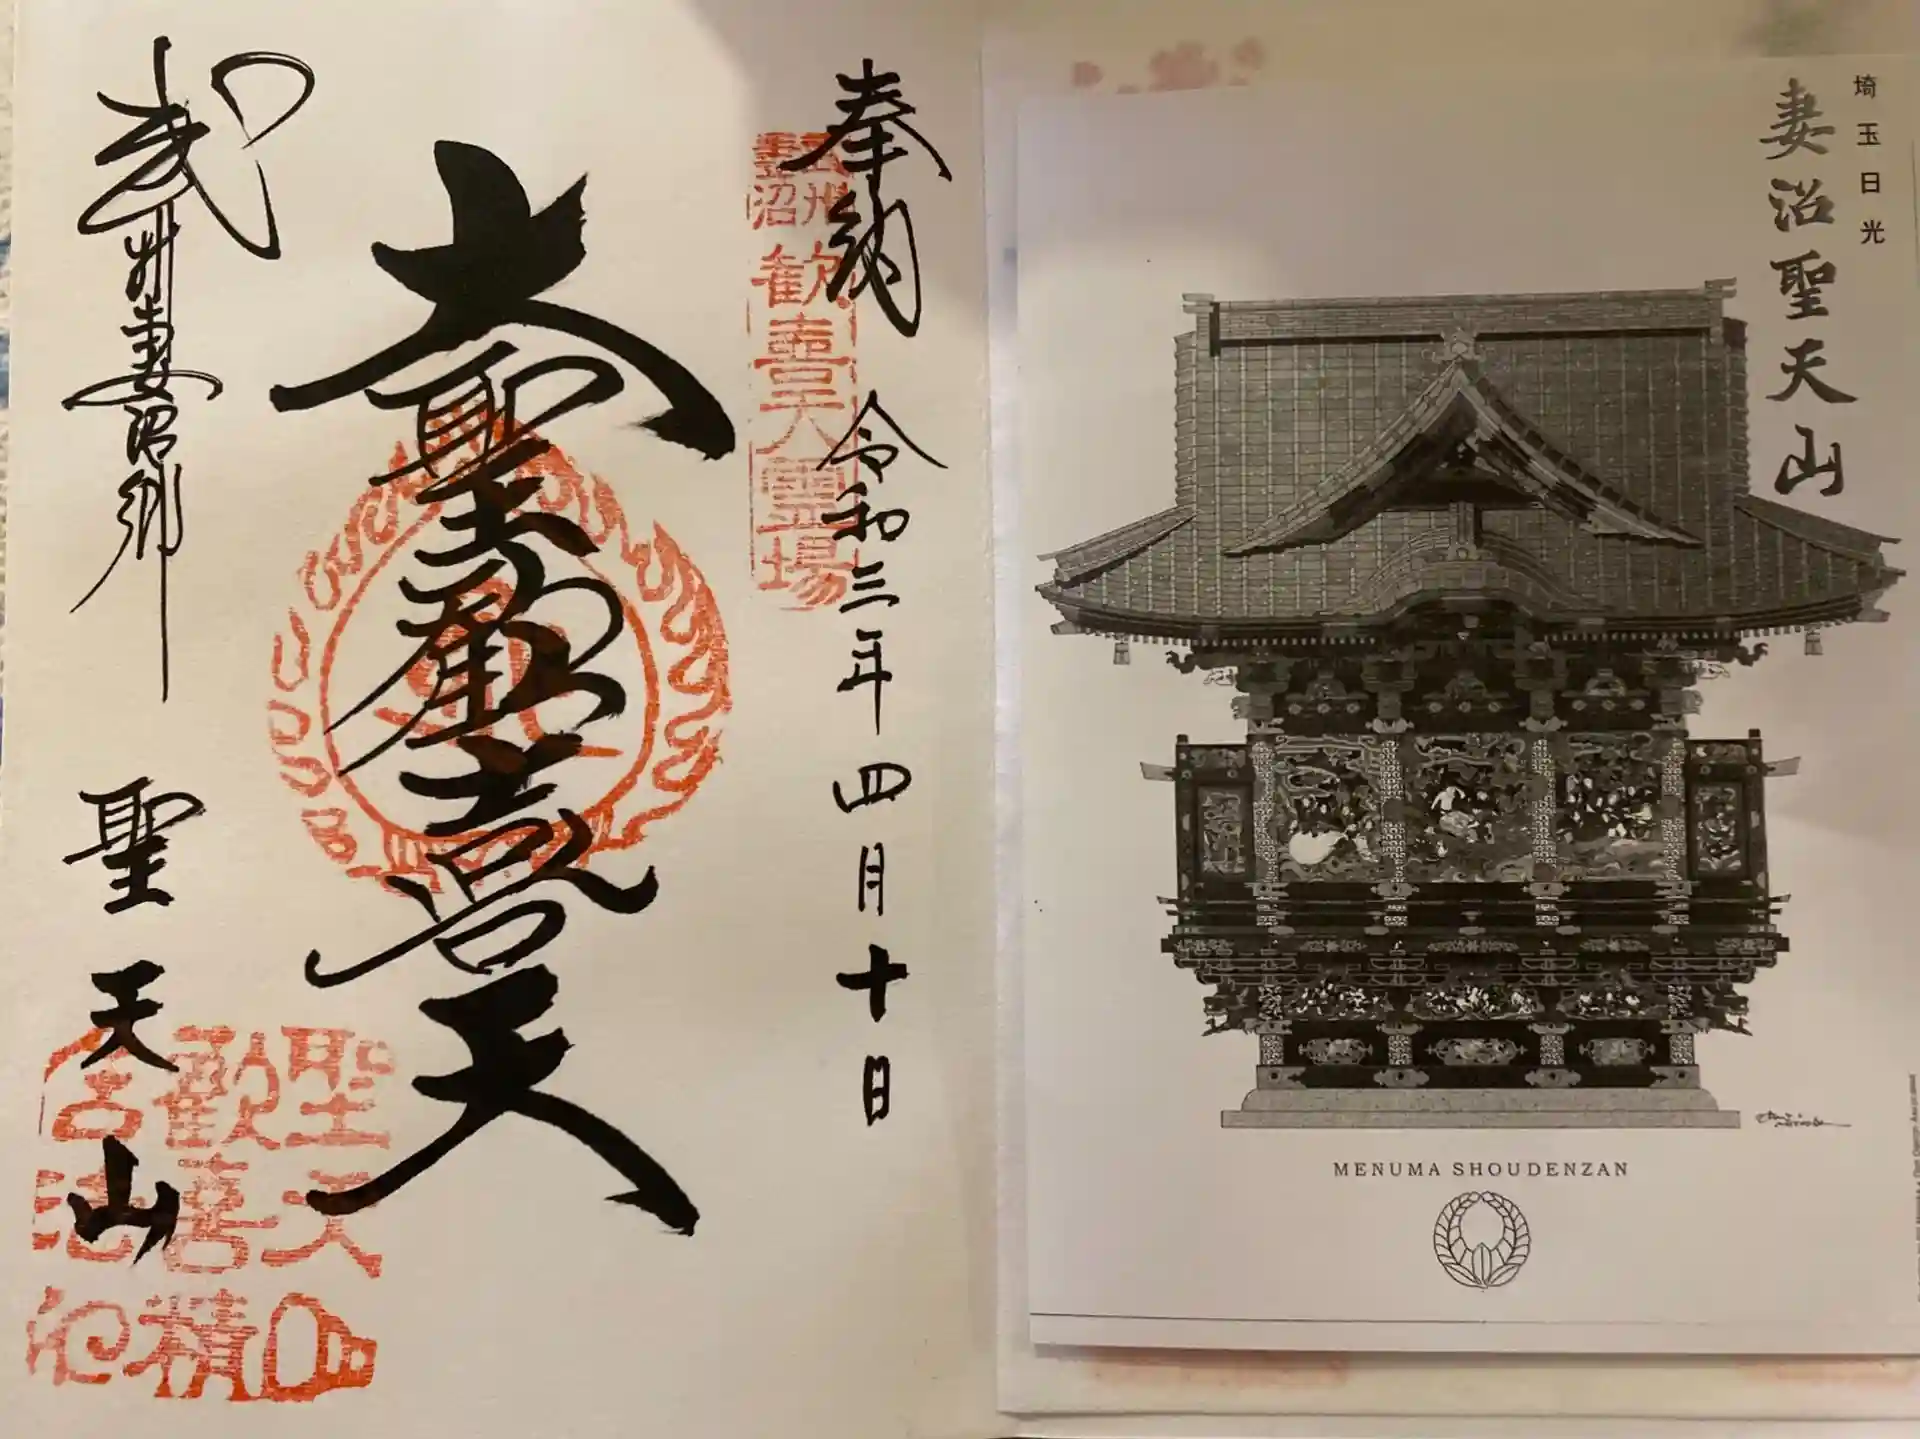 埼玉日光
妻沼聖天山
MENUMA SHOUDENZAN
奉納 令和三年四月十日
武州
妻沼
歓喜天霊場
大聖歓喜天
武州妻沼郷 聖天山
聖天
歓喜